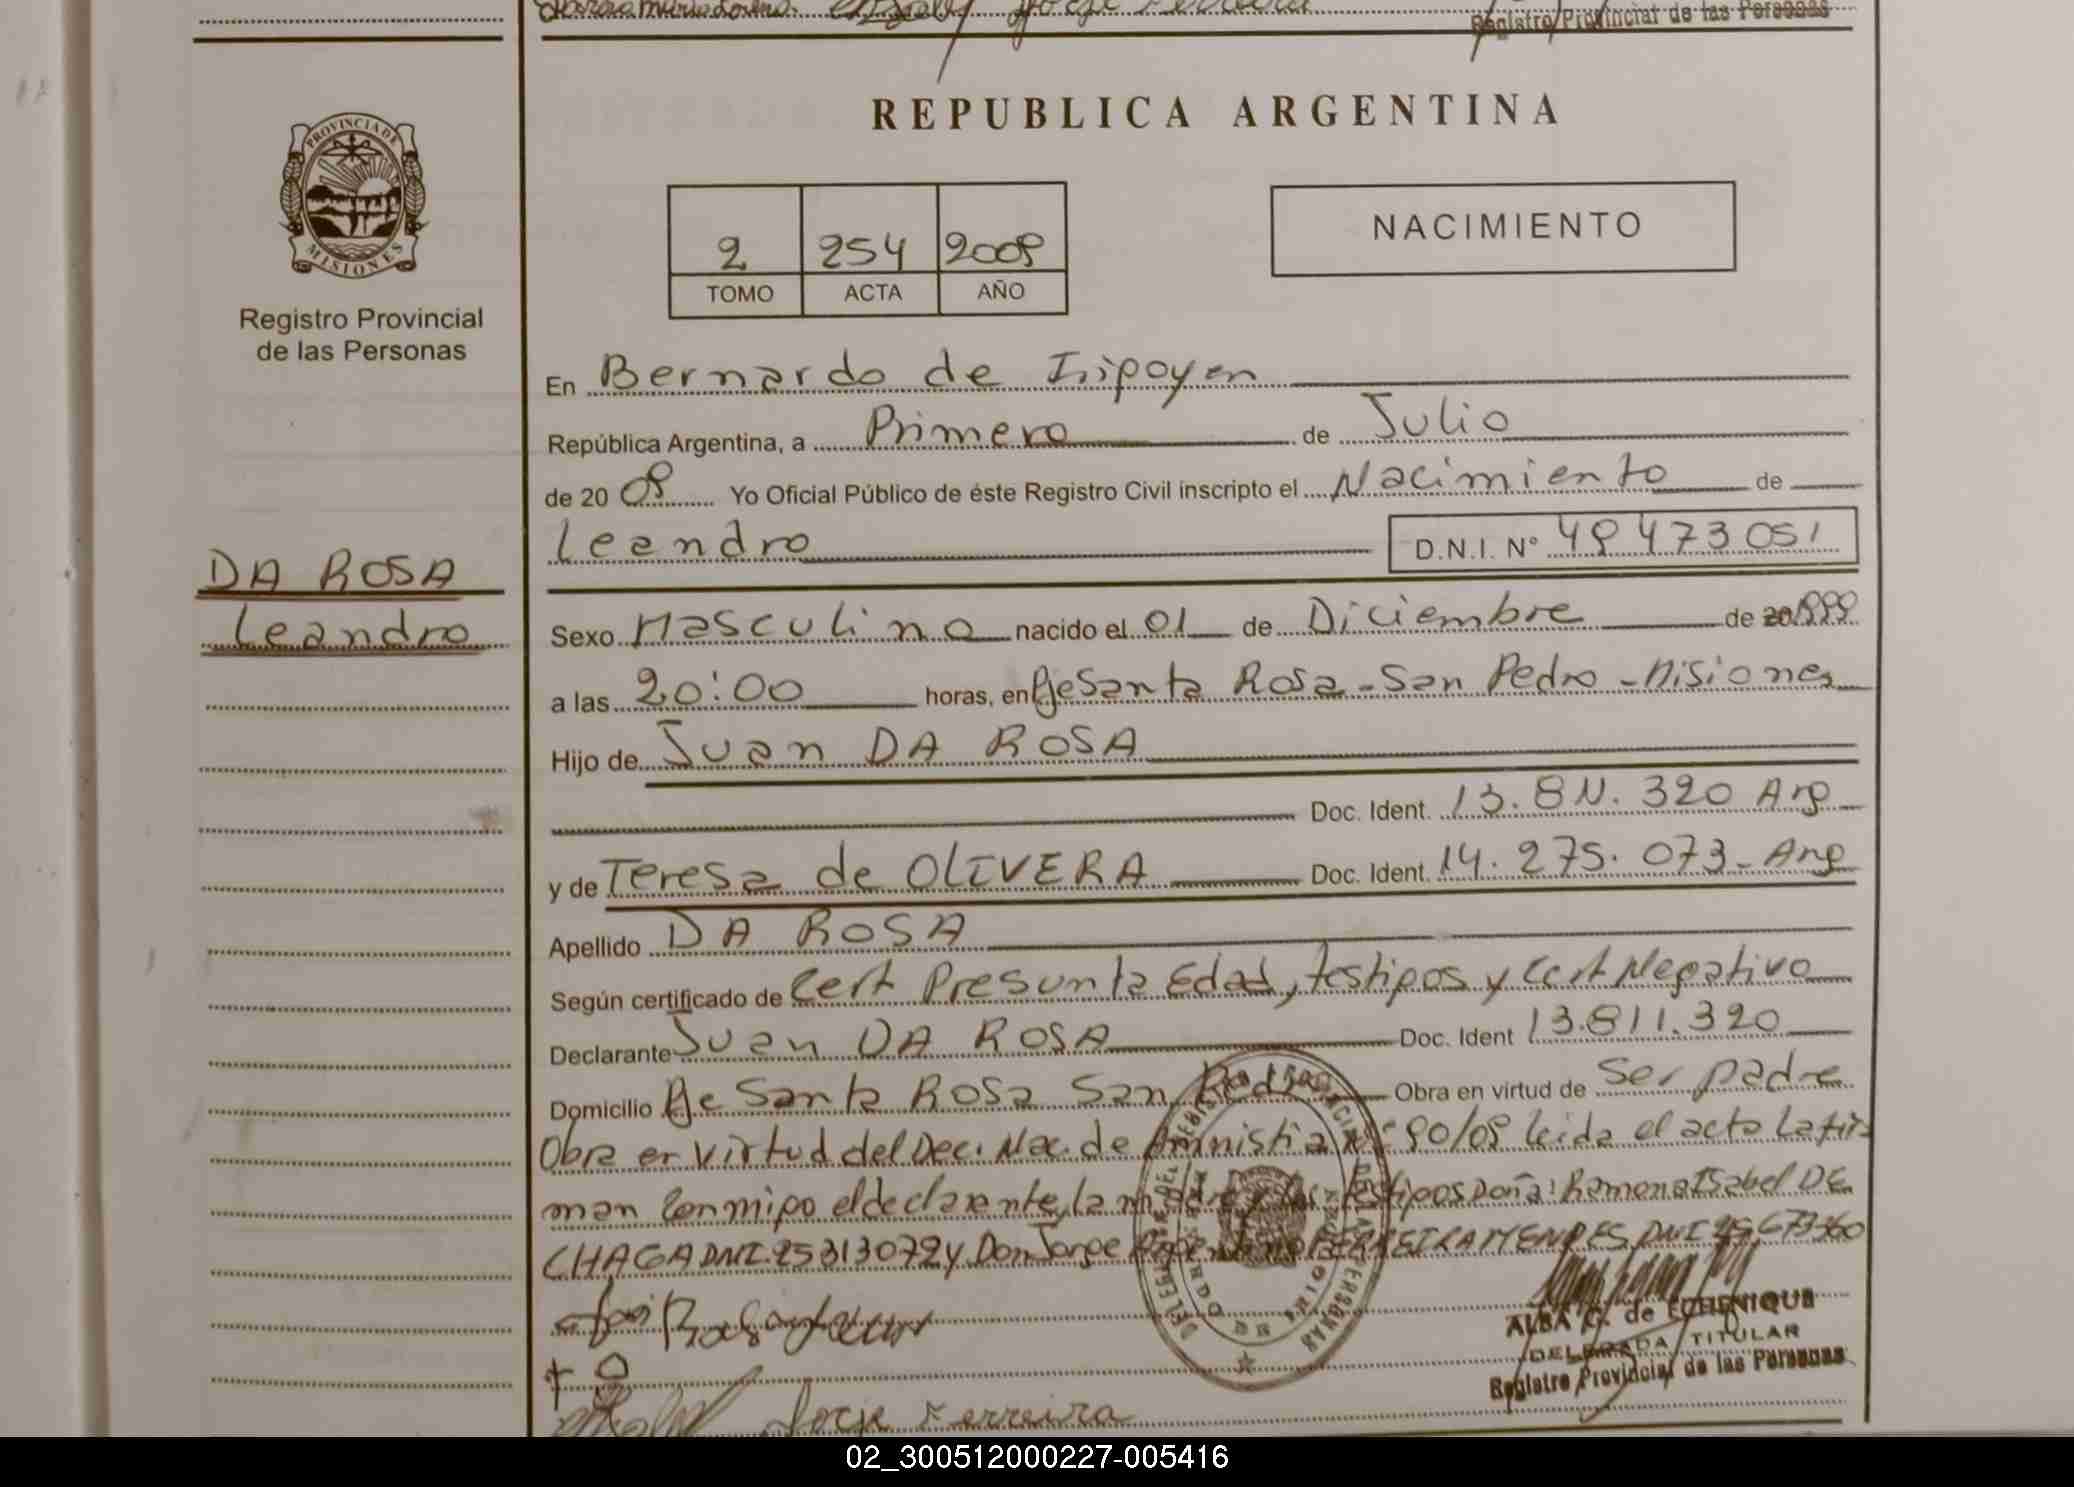 Registro Provincial de las Personas
REPUBLICA ARGENTINA
PROVINCIA DE
MISIONES
Registro Provincial
de las Personas
2 254 2009
TOMO ACTA AÑO
NACIMIENTO
En Bernardo de Irigoyen
República Argentina, a Primero de Julio
de 20 09 Yo Oficial Público de éste Registro Civil inscripto el Nacimiento de
Leandro D.N.I. Nº 49473051
DA ROSA
Leandro
Sexo Masculino nacido el 01 de Diciembre de 20 1999
a las 20:00 horas, en Pje Santa Rosa - San Pedro - Misiones
Hijo de Juan DA ROSA
Doc. Ident. 13.811.320 Arg
y de Teresa de OLIVERA Doc. Ident. 14.275.073 - Arg
Apellido DA ROSA
Según certificado de Cert Presunta Edad, testigos y Cert Negativo
Declarante Juan DA ROSA Doc. Ident 13.811.320
Domicilio Pje Santa Rosa San Pedro Obra en virtud de Ser padre
Obra en virtud del Dec. Nac. de Amnistia Nº 90/09 leida el acta La fir
man conmigo el declarante, la madre y los testigos Doña: Ramona Isabel DE
CHAGA DNI. 25313072 y Don Jorge FERREIRA MENDES DNI 29.673360
ALBA de ECHENIQUE
DELEGADA TITULAR
Registro Provincial de las Personas
Jorge Ferreira
02_300512000227-005416